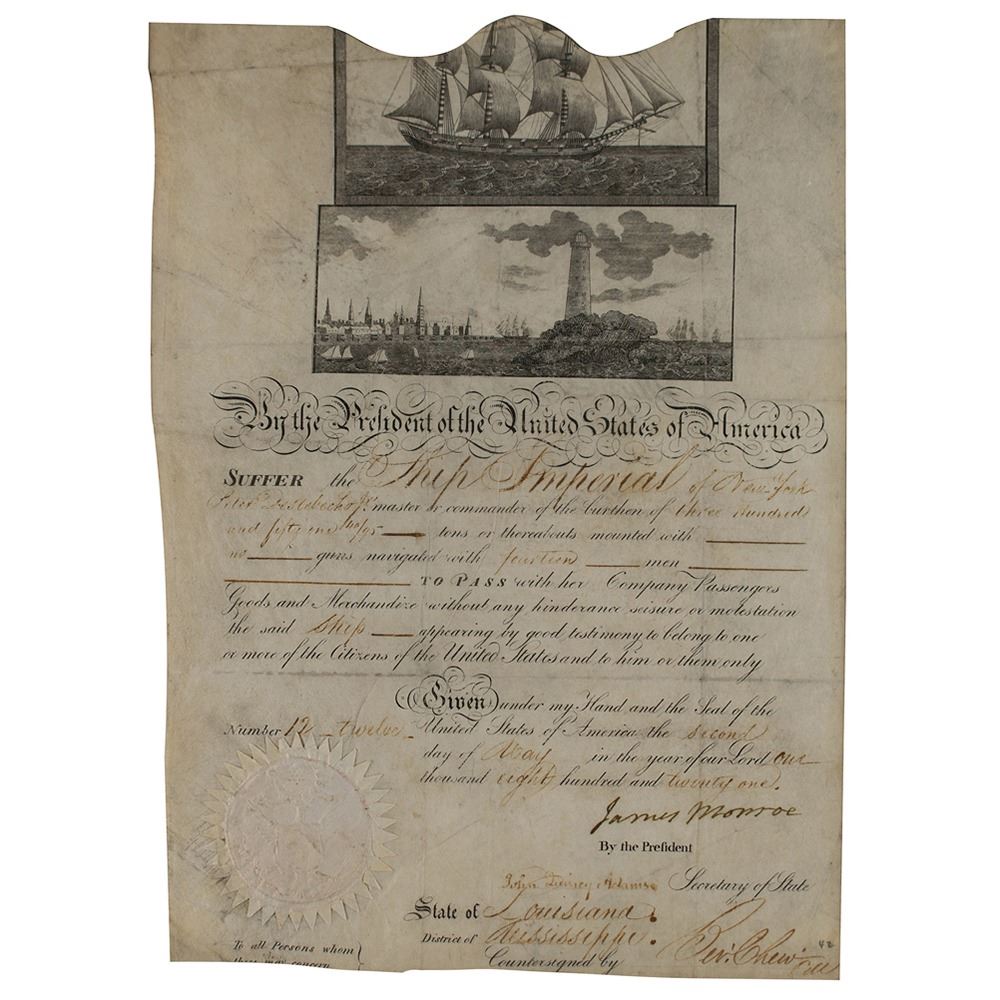 By the President of the United States of America
SUFFER the Ship Imperial of New-York
Peter master or commander of the burthen of three hundred
and fifty one /95 tons or thereabouts mounted with
no guns navigated with fourteen men
TO PASS with her Company Passengers
Goods and Merchandize without any hinderance seisure or molestation
the said Ship appearing by good testimony to belong to one
or more of the Citizens of the United States and to him or them only
Given under my Hand and the Seal of the
Number 12 - twelve - United States of America the second
day of May in the year of our Lord one
thousand eight hundred and twenty one.
James Monroe
By the President
John Quincy Adams Secretary of State
State of Louisiana.
District of Mississippi.
Countersigned by Bev. Chew Coll
42
To all Persons whom
these may concern